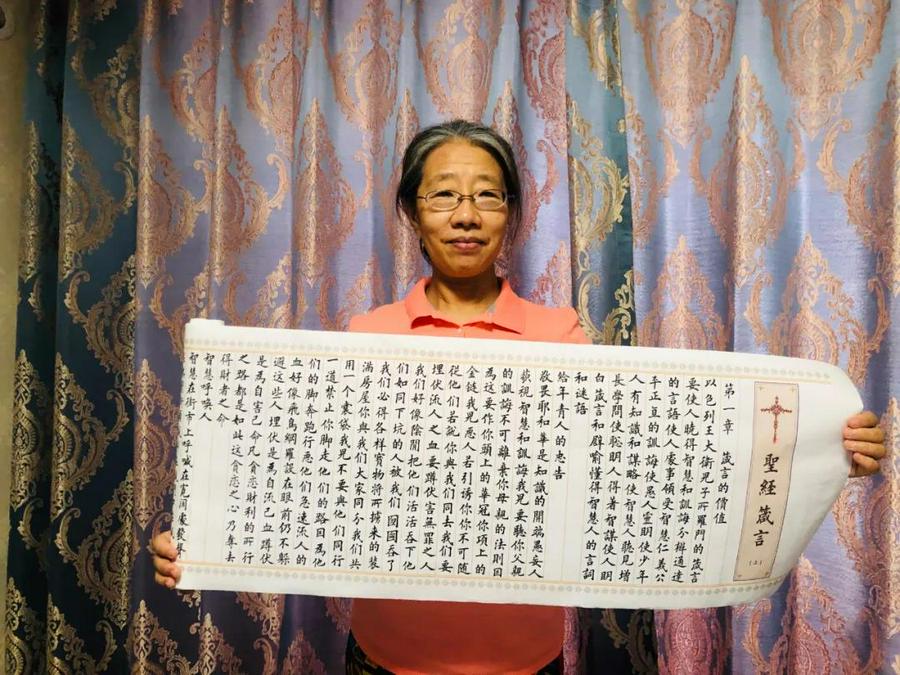 聖經箴言
（上）
第一章 箴言的價值
以色列王大衛兒子所羅門的箴言
要使人曉得智慧和訓誨分辨通達
的言語使人處事領受智慧仁義公
平正直的訓誨使愚人靈明使少年
人有知識和謀略使智慧人聽見增
長學問使聰明人得著智謀使人明
白箴言和譬喻懂得智慧人的言詞
和謎語
給年青人的忠告
敬畏耶和華是知識的開端愚妄人
藐視智慧和訓誨我兒要聽你父親
的訓誨不可離棄你母親的法則因
為這要作你頭上的華冠你項上的
金鏈我兒惡人若引誘你你不可隨
從他們若說你與我們同去我們要
埋伏流人之血要蹲伏害無罪之人
我們好像陰間把他們活活吞下他
們如同下坑的人被我們囫圇吞了
我們必得各樣寶物將所擄來的裝
滿房屋你與我們大家同分我們共
用一個囊袋我兒不要與他們同行
一道禁止你脚走他們的路因為他
們的脚奔跑行惡他們急速流人的
血好像飛鳥網羅設在眼前仍不躲
避這些人埋伏是為自流己血蹲伏
是為自害己命凡貪戀財利的所行
之路都是如此這貪戀之心乃奪去
得財者之命
智慧呼喚人
智慧在街市上呼喊在寬闊處發聲